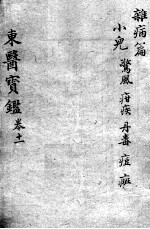 雜病篇
小兒 驚風 疳疾 丹毒 痘 疹
東醫寶鑑 卷十一